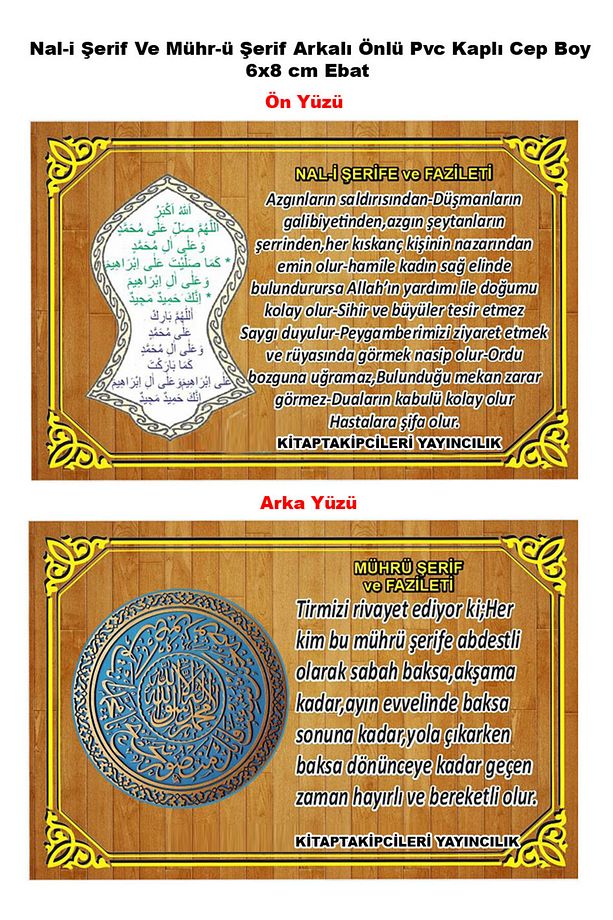 Nal-i Şerif Ve Mühr-ü Şerif Arkalı Önlü Pvc Kaplı Cep Boy
6x8 cm Ebat
Ön Yüzü
اللهُ اَكْبَرُ
اَللّٰهُمَّ صَلِّ عَلَى مُحَمَّدٍ
وَعَلَى اٰلِ مُحَمَّدٍ
* كَمَا صَلَّيْتَ عَلَى اِبْرَاهِيمَ
وَعَلَى اٰلِ اِبْرَاهِيمَ
* اِنَّكَ حَمِيدٌ مَجِيدٌ
اَللّٰهُمَّ بَارِكْ
عَلَى مُحَمَّدٍ
وَعَلَى اٰلِ مُحَمَّدٍ
كَمَا بَارَكْتَ
عَلَى اِبْرَاهِيمَ وَعَلَى اٰلِ اِبْرَاهِيمَ
اِنَّكَ حَمِيدٌ مَجِيدٌ
NAL-İ ŞERİFE ve FAZİLETİ
Azgınların saldırısından-Düşmanların
galibiyetinden,azgın şeytanların
şerrinden,her kıskanç kişinin nazarından
emin olur-hamile kadın sağ elinde
bulundurursa Allah'ın yardımı ile doğumu
kolay olur-Sihir ve büyüler tesir etmez
Saygı duyulur-Peygamberimizi ziyaret etmek
ve rüyasında görmek nasip olur-Ordu
bozguna uğramaz,Bulunduğu mekan zarar
görmez-Duaların kabulü kolay olur
Hastalara şifa olur.
KİTAPTAKİPCİLERİ YAYINCILIK
Arka Yüzü
MÜHRÜ ŞERİF
ve FAZİLETİ
Tirmizi rivayet ediyor ki;Her
kim bu mührü şerife abdestli
olarak sabah baksa,akşama
kadar,ayın evvelinde baksa
sonuna kadar,yola çıkarken
baksa dönünceye kadar geçen
zaman hayırlı ve bereketli olur.
KİTAPTAKİPCİLERİ YAYINCILIK